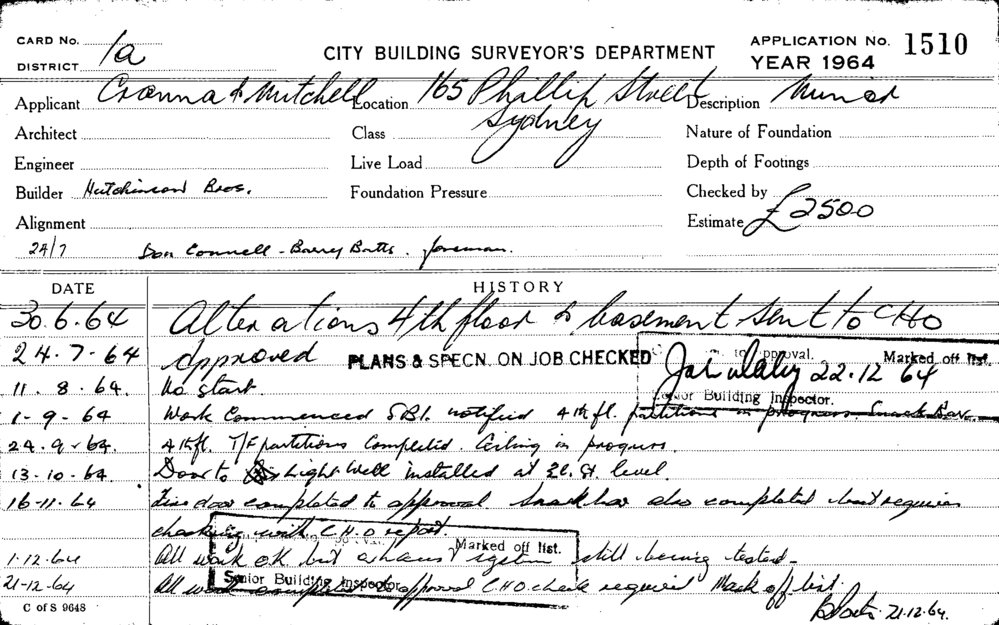 CARD No. 1a
DISTRICT
CITY BUILDING SURVEYOR'S DEPARTMENT
APPLICATION No. 1510
YEAR 1964
Applicant Cranna & Mitchell Location 165 Phillip Street Sydney Description Minor
Architect Class Nature of Foundation
Engineer Live Load Depth of Footings
Builder Hutchinson Bros. Foundation Pressure Checked by
Alignment Estimate £2500
24/7 Don Connell - Barry Batts. foreman.
DATE HISTORY
30.6.64 Alterations 4th floor & basement sent to CHO
24.7.64 Approved PLANS & SPECN. ON JOB CHECKED
to approval. Marked off list.
22.12 64
Senior Building Inspector.
11.8.64. No start.
1-9-64 Work Commenced notified 4th fl. partitions in progress. Snack Bar.
24.9.64. 4th fl. T/F partitions Completed. Ceiling in progress.
13-10-64. Door to Light Well installed at level.
16-11-64 Fire door completed to approval Snack bar also completed but requires
checking with C.H.O report.
Marked off list.
1-12-64 All work OK but system still being tested-
21-12-64 All work approval C.H.O check required Mark off list.
Senior Building Inspector
21.12.64.
C of S 9648